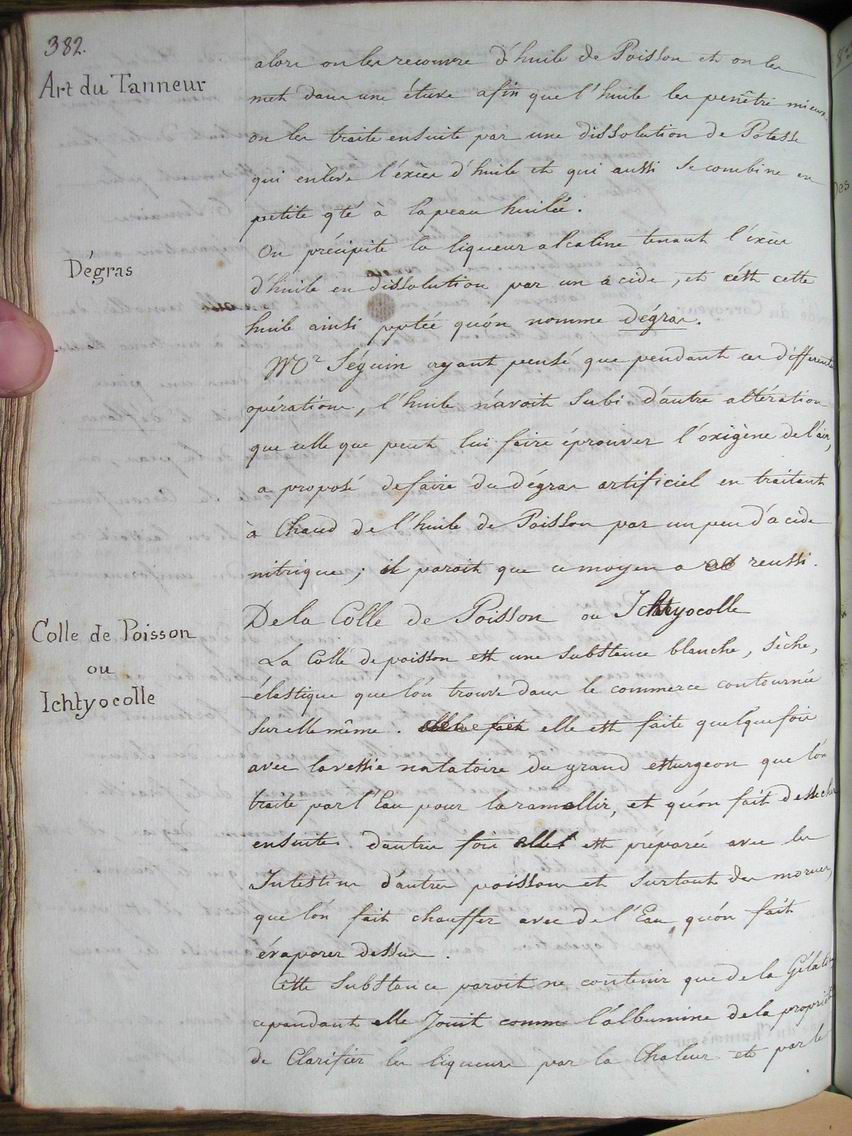 382.
Art du Tanneur
alors on les recouvre d'huile de Poisson et on les
met dans une étuve afin que l'huile les penêtre mieux
on les traite ensuite par une dissolution de Potasse
qui enlève l'excès d'huile et qui aussi se combine en
petite qté à la peau huilée.
Dégras
On précipite la liqueur alcaline tenant l'excès
d'huile en dissolution par un acide, et c'est cette
huile ainsi pptée qu'on nomme dégras.
Mr Séguin ayant pensé que pendant ces differentes
opérations, l'huile n'avoit subi d'autre altération
que celle que peut lui faire éprouver l'oxigène de l'air,
a proposé de faire du dégras artificiel en traitant
à Chaud de l'huile de Poisson par un peu d'acide
nitrique ; il paroit que ce moyen a reussi.
Colle de Poisson
ou
Ichtyocolle
De la Colle de Poisson ou Ichtyocolle
La Colle de poisson est une substance blanche, sèche,
élastique que l'on trouve dans le commerce contournée
sur elle même. elle est faite quelquefois
avec la vessie natatoire du grand esturgeon que l'on
traite par l'Eau pour la ramollir, et qu'on fait dessecher
ensuite. d'autres fois elle est préparée avec les
Intestins d'autres poissons et surtout des morues,
que l'on fait chauffer avec de l'Eau, qu'on fait
évaporer dessus.
Cette substance paroit ne contenir que de la Gélatine
cependant elle Jouit comme l'albumine de la propriété
de Clarifier les liqueurs par la Chaleur et par les